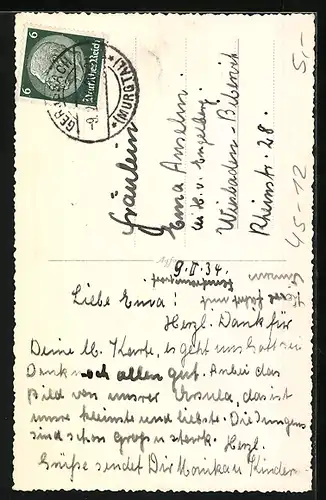 6 6
Deutsches Reich
(MURGTAL)
Fräulein
Erna Anselm
bei H. v. Engelberg
Wiesbaden-Biebrich
Rheinstr. 28.
5,-
45-12
9.II.34.
Liebe Erna!
Herzl. Dank für
Deine lb. Karte, es geht uns Gott sei
Dank noch allen gut. Anbei das
Bild von unsrer Ursula, das ist
unsre kleinste und liebste. Die Jungens
sind schon groß u. stark. Herzl.
Grüße sendet Dir Monika u. Kinder